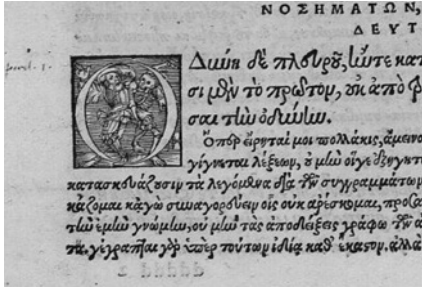 ΝΟΣΗΜΑΤΩΝ,
ΔΕΥΤ
Ὀδύνη δὲ πλευροῦ, ὥστε κατ
σι μὲν τὸ πρῶτον, οὐκ ἀπὸ
σαι τὴν ὀδύνην.
Ὅπερ εἴρηταί μοι πολλάκις, ἄμεινο
γίγνεται λέξεων, ὁ μὲν οἵγε ἐξηγητ
κατασκευάζουσιν τὰ λεγόμενα διὰ τῶν συγραμμάτων
κάζομαι κἀγὼ συναγορεύειν οἷς οὐκ ἀρέσκομαι, προ
τὴν ἐμὴν γνώμην, οὐ μὴν τὰς ἀποδείξεις γράφω τῶν
τα, γέγραπται γὰρ ὑπὲρ τούτων ἰδίᾳ καθ' ἕκαστον, ἀλλὰ